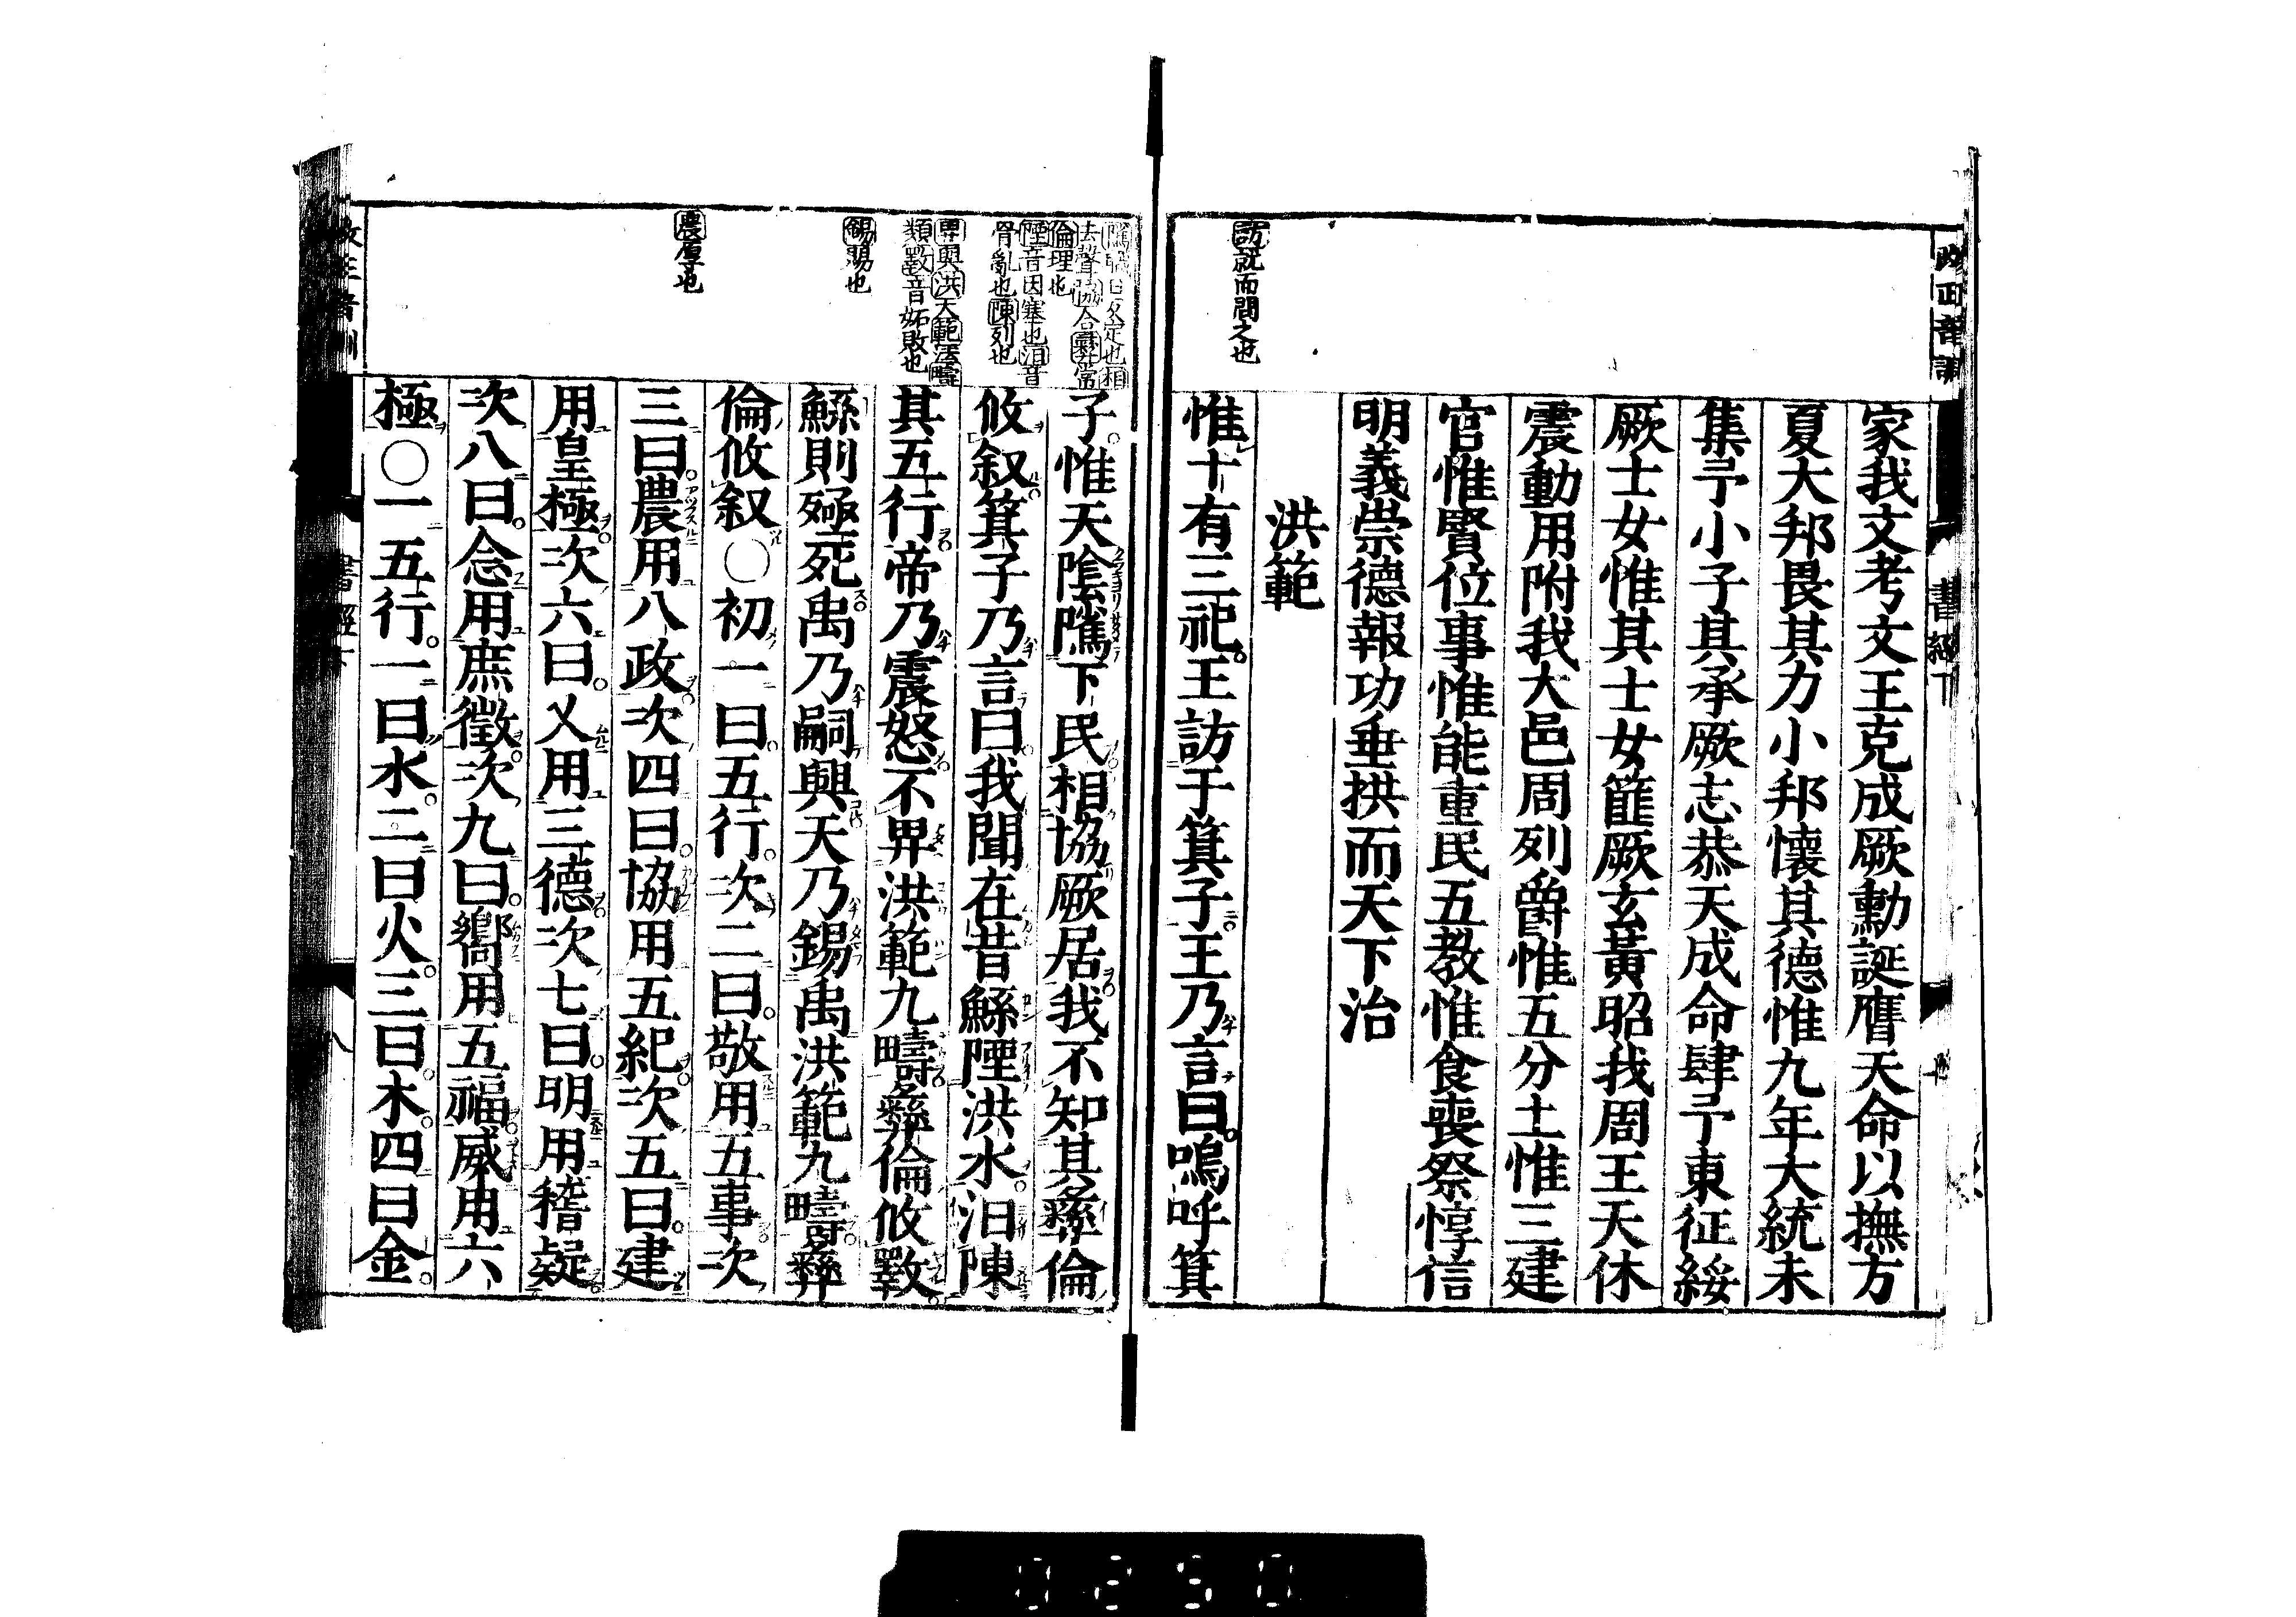 改正音訓
書經下
訪就而問之也
家我文考文王克成厥勳誕膺天命以撫方
夏大邦畏其力小邦懷其德惟九年大統未
集予小子其承厥志恭天成命肆予東征綏
厥士女惟其士女篚厥玄黃昭我周王天休
震動用附我大邑周列爵惟五分土惟三建
官惟賢位事惟能重民五教惟食喪祭惇信
明義崇德報功垂拱而天下治
洪範
惟十有三祀王訪于箕子王乃言曰嗚呼箕
去聲協合彝常
倫理也
陻音因塞也汩音
骨亂也陳列也
畀與洪大範法疇
類斁音妬敗也
錫賜也
農厚也
子惟天陰隲下民相協厥居我不知其彝倫
攸叙箕子乃言曰我聞在昔鯀陻洪水汩陳
其五行帝乃震怒不畀洪範九疇彝倫攸斁
鯀則殛死禹乃嗣興天乃錫禹洪範九疇彝
倫攸叙〇初一曰五行次二曰敬用五事次
三曰農用八政次四曰協用五紀次五曰建
用皇極次六曰乂用三德次七曰明用稽疑
次八曰念用庶徵次九曰嚮用五福威用六
極〇一五行一曰水二曰火三曰木四曰金
書經下
八
0250